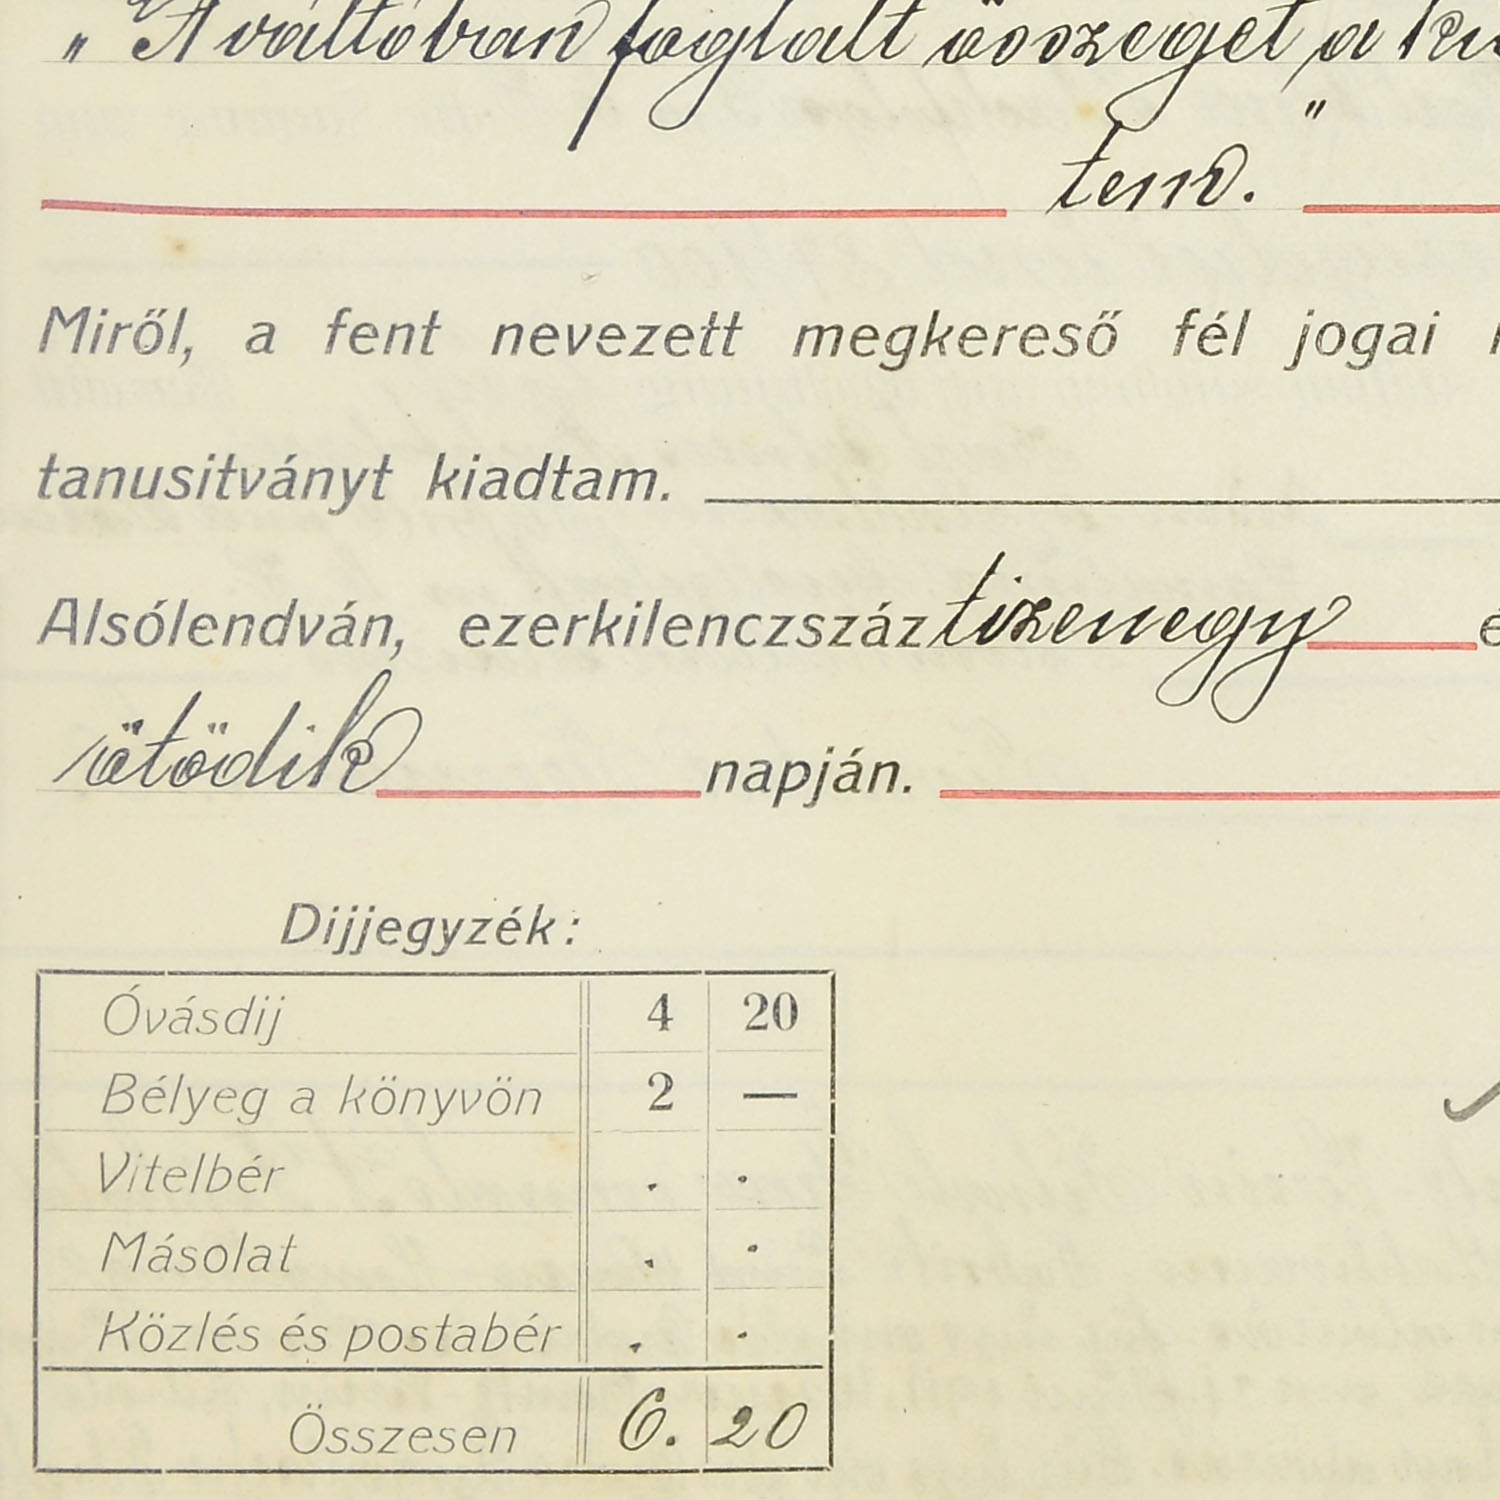 „A váltóban foglalt összeget a
tend."
Miről, a fent nevezett megkereső fél jogai
tanusitványt kiadtam.
Alsólendván, ezerkilenczszáz tizenegy
ötödik napján.
Dijjegyzék:
Óvásdij 4 20
Bélyeg a könyvön 2 —
Vitelbér . .
Másolat . .
Közlés és postabér . .
Összesen 6. 20